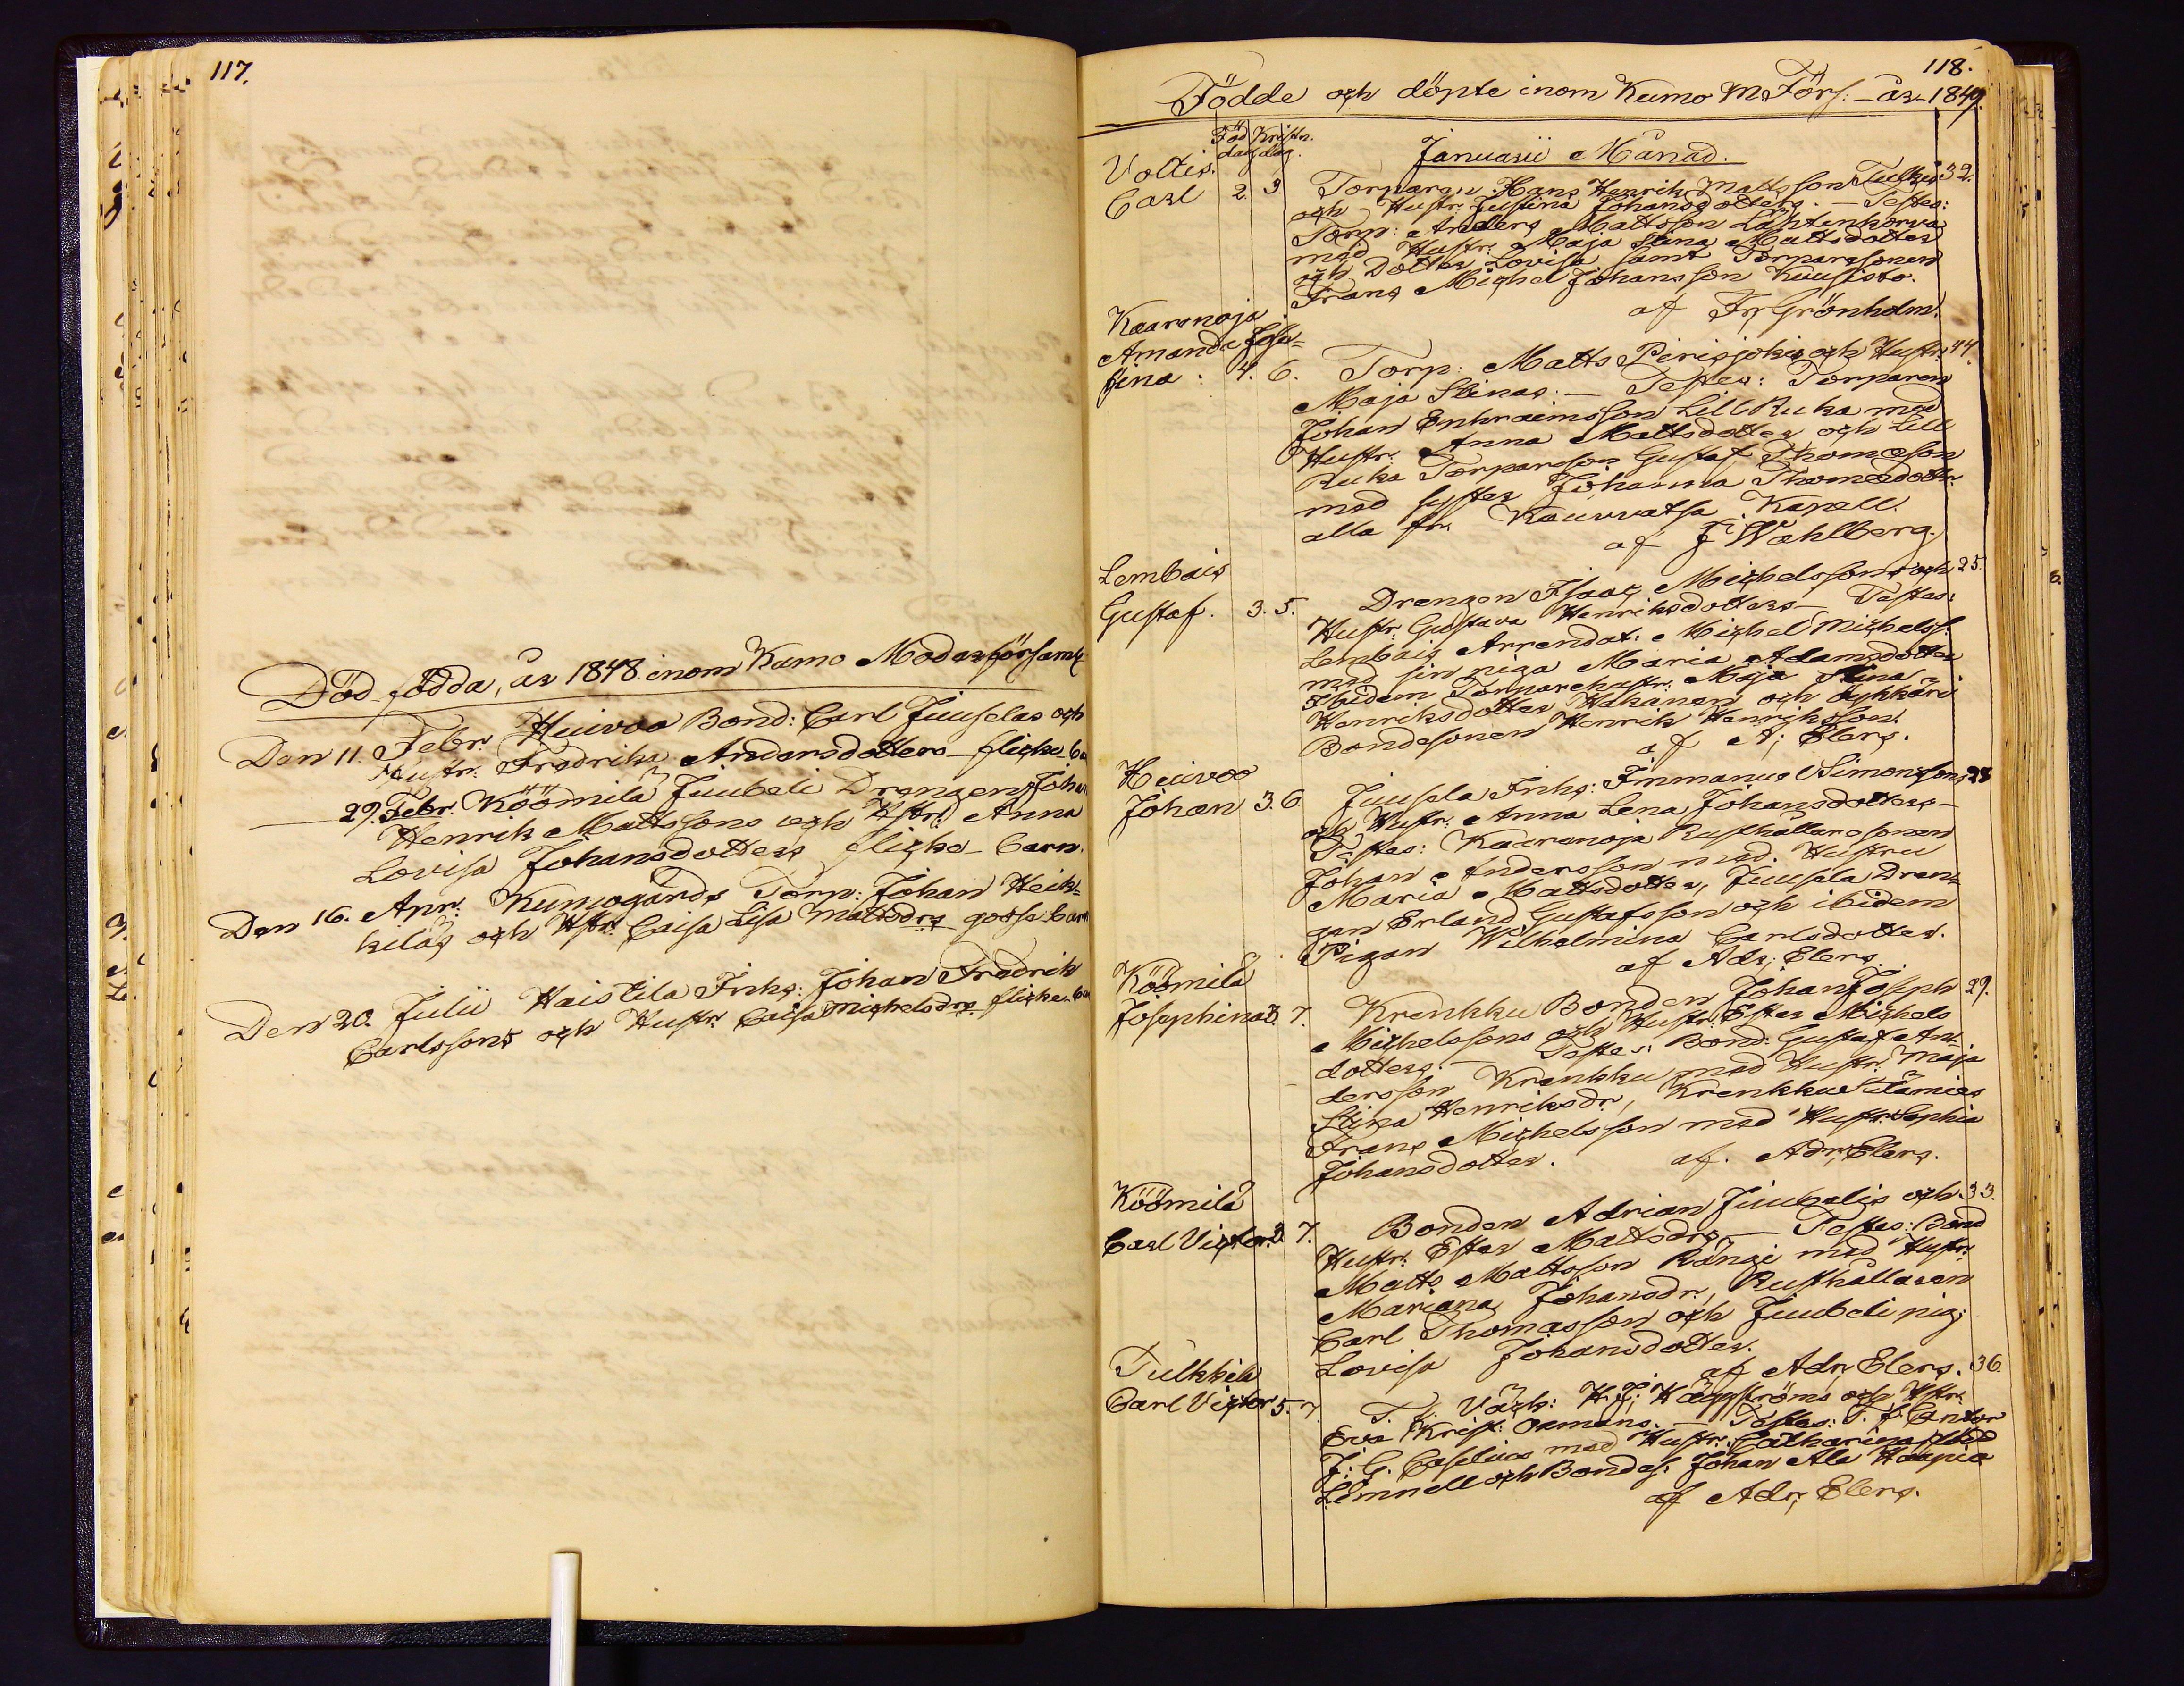 117.
Död födda, år 1848. inom Kumo Moderförsaml
Den 11. Febr. Huivoo Bond: Carl Juuselas och
Hustr. Fredrika Andersdotters – flicke-ba
29. Febr. Köömilä Juubeli Drengen Johan
Henrik Mattssons och Hstr: Anna
Lovisa Johansdotters flicke-barn.
Den 16. Apr: Kungsgårds Torp: Johan Heik-
kiläs och Hstr. Caisa Lisa Mattsdrs gosse-barn
Den 20. Julii Haistila Inhs: Johan Fredrik
Carlssons och Hustr. Caisa Michelsdrs flicke-ba
118.
Födde och döpte inom Kumo M. Förs: – år 1849.
Föd. Kristn.
dag dag.
Januarii Månad.
Voltis.
Carl 2. 3. Torparen Hans Henrik Mattsson Tulkis 32.
och Hustr. Justina Johansdotters. – Testes:
Torp: Anders Mattsson Lähtenkorva
med Hustr. Maja Stina Mattsdotter
och Dotter Lovisa samt Torparesonen
Frans Michel Johansson Kuusisto.
af Fr. Grönholm.
Kaaronoja
Amanda Jose-
fina: 4. 6. Torp: Matts Pirisjokis och Hustr. 44.
Maja Stinas: – Testes: Torparen
Johan Enhraemsson Lill Ruka med
Hustr. Anna Mattsdotter och Lill
Ruka Torpareson Gustaf Thomasson
med syster Johanna Thomasdottr.
alla frn Kauvvatsa Kapell.
af J. Wahlberg.
Lembois
Gustaf. 3. 5. Drengen Isaac Michelssons och 25.
Hustr. Gustava Henriksdotters – Testes:
Lembois Arrendat: Michel Michelss:
med sin piga Maria Adamsdotter
Ibidem Torparehustr. Maja Stina
Henriksdotter Hakanen och Lykkäri
Bondesonen Henrik Henriksson.
af A; Elers.
Huivoo
Johan 3. 6. Juusela Inhs: Immanuel Simonssons 28
och Hustr. Anna Lena Johansdotters –
Testes: Kaaronoja Rusthållaresonen
Johan Andersson med Hustru
Maria Mattsdotter, Juusela Dren-
gen Erland Gustafsson och ibidem
Pigan Wilhelmina Carlsdotter.
af Adr; Elers.
Köömilä
Josephina 3. 7. Krenkku Bonden Johan Joseph 29.
Michelssons och Hustr. Ester Michels
dotters. – Testes: Bond: Gustaf An-
dersson Krenkku med Hustr. Maja
Stina Henriksdr, Krenkku
Frans Michelsson med Hustr. Sophia
Johansdotter. af. Adr; Elers.
Köömilä
Carl Victor 3. 7. Bonden Adrian Juubelis och 33.
Hustr. Ester Mattsdrs – Testes: Bond
Matts Mattsson Rängi med Hustr.
Mariana Johansdr, Rusthållaren
Carl Thomasson och Juubeli pig:
Lovisa Johansdotter.
af Adr; Elers. 36.
Tulkkila
Carl Victor 5. 7. T. f. H. J. Häggströms och Hstr:
Eva Krist: Oemans. – Testes: T. f. Cantor
J: G: Caselius med Hustr. Catharina
Limnell och Bondes: Johan Ala Haapia
af Adr; Elers.